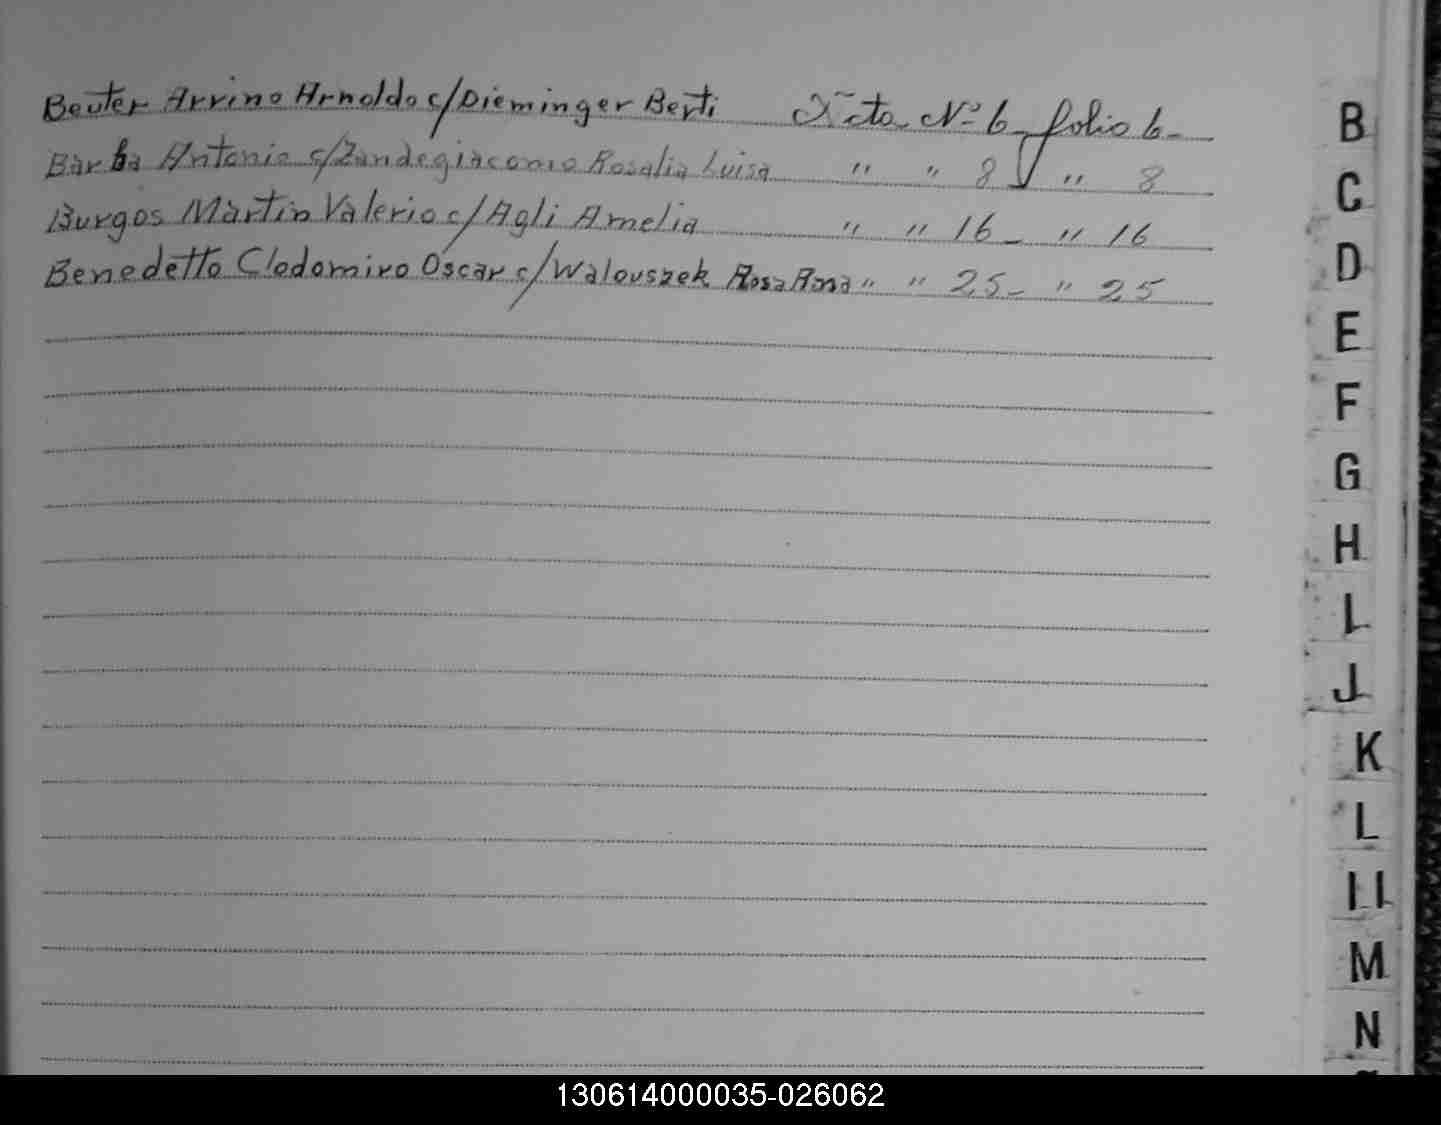 Beuter Arvino Arnoldo c/Dieminger Berti Acta Nº 6 folio 6-
Barba Antonio c/Zandegiacomo Rosalia Luisa " " 8 " 8
Burgos Martin Valerio c/Agli Amelia " " 16 - " 16
Benedetto Clodomiro Oscar c/Walouszek Rosa Ana " " 25 - " 25
B
C
D
E
F
G
H
I
J
K
L
LL
M
N
130614000035-026062